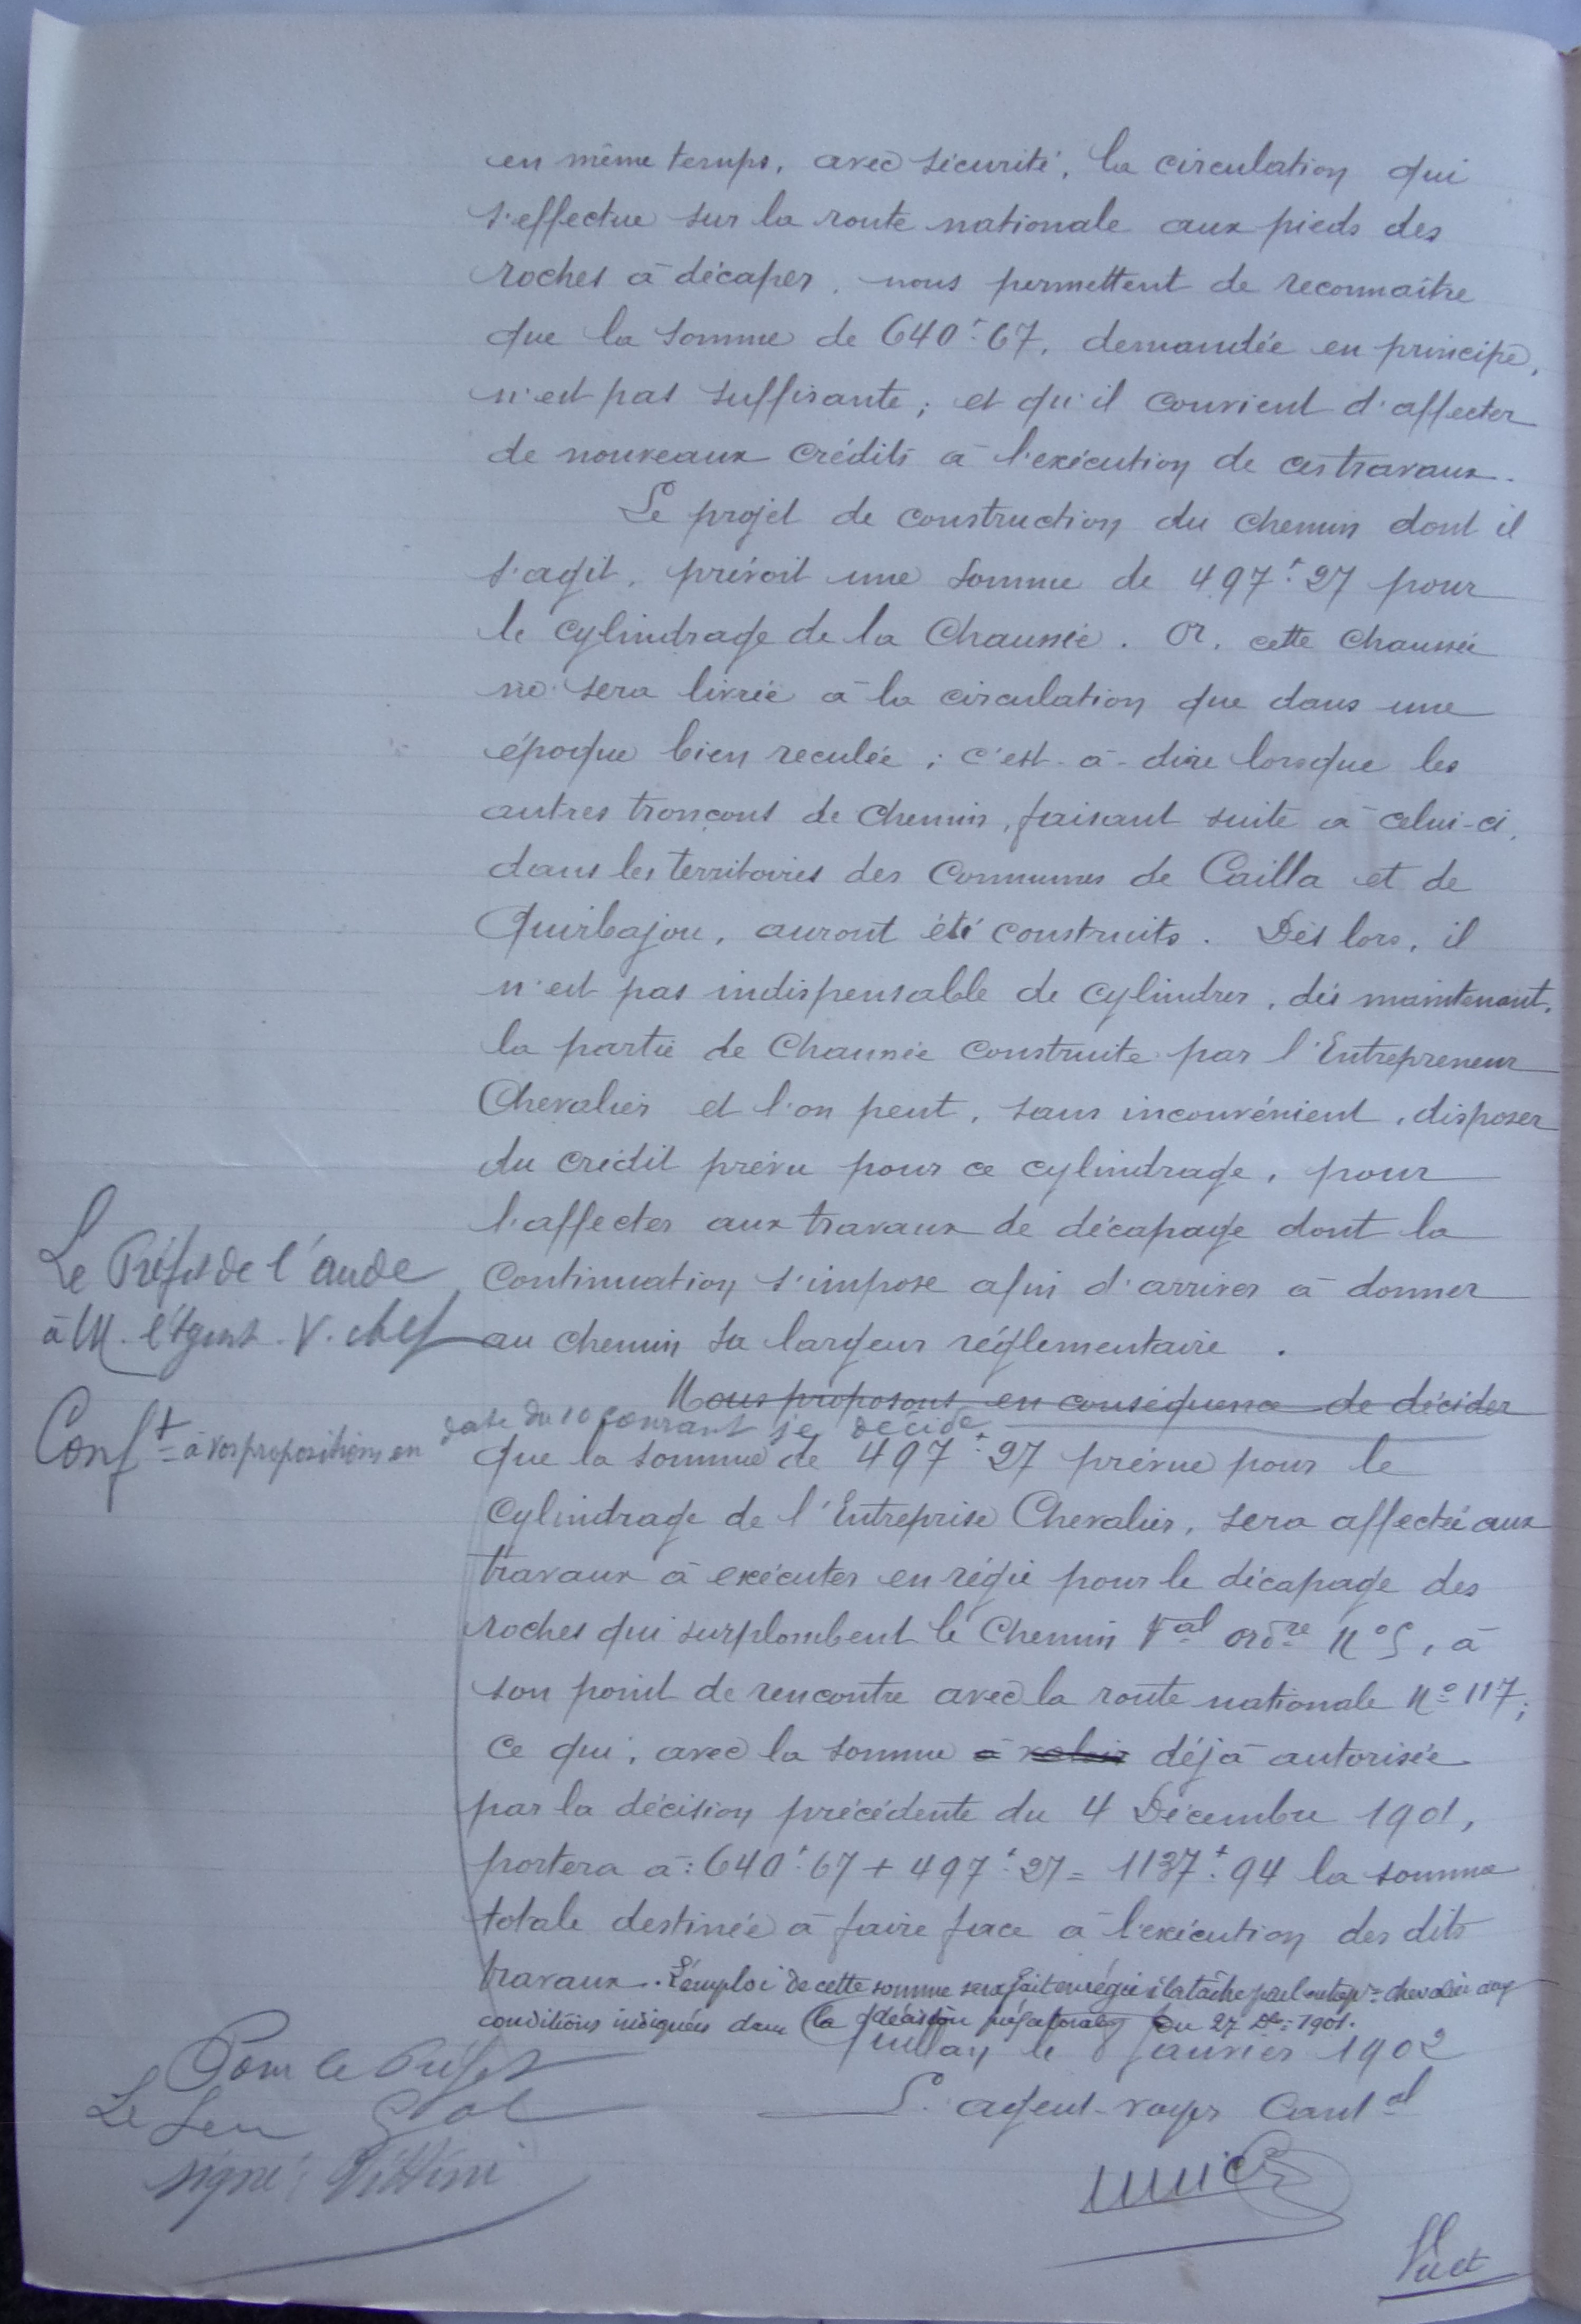 en même temps, avec sécurité, la circulation qui
s'effectue sur la route nationale aux pieds des
roches à décaper, nous permettent de reconnaître
que la somme de 640f.67, demandée en principe,
n'est pas suffisante; et qu'il convient d'affecter
de nouveaux crédits à l'exécution de ces travaux.
Le projet de construction du chemin dont il
s'agit, prévoit une somme de 497f.27 pour
le cylindrage de la Chaussée. Or, cette chaussée
ne sera livrée à la circulation que dans une
époque bien reculée; c'est-à-dire lorsque les
autres tronçons de chemin, faisant suite à celui-ci,
dans les territoires des Communes de Cailla et de
Quirbajou, auront été construits. Dès lors, il
n'est pas indispensable de cylindrer, dès maintenant,
la partie de Chaussée construite par l'Entrepreneur
Chevalier et l'on peut, sans inconvénient, disposer
du crédit prévu pour ce cylindrage, pour
l'affecter aux travaux de décapage dont la
Continuation s'impose afin d'arriver à donner
au chemin sa largeur réglementaire.
Le Préfet de l'aude
à M. l'Agent-V. chef
Nous proposons en conséquence de décider
Conft à vos propositions en date du 10 courant je décide
que la somme de 497f.27 prévue pour le
Cylindrage de l'Entreprise Chevalier, sera affectée aux
travaux à exécuter en régie pour le décapage des
roches qui surplombent le Chemin Val ordre N° 5, à
son point de rencontre avec la route nationale N° 117;
ce qui, avec la somme à valoir déjà autorisée
par la décision précédente du 4 Décembre 1901,
portera à: 640f.67 + 497f.27 = 1137f.94 la somme
totale destinée à faire face à l'exécution des dits
travaux. L'emploi de cette somme sera fait en régie à la tâche par l'entrepr Chevalier aux
conditions indiquées dans la décision préfectorale du 27 Dbre 1901.
Quillan, le 8 Janvier 1902
L'agent-voyer Cantal
Pour le Préfet
Le Sen Gal
signé: 
Vu et